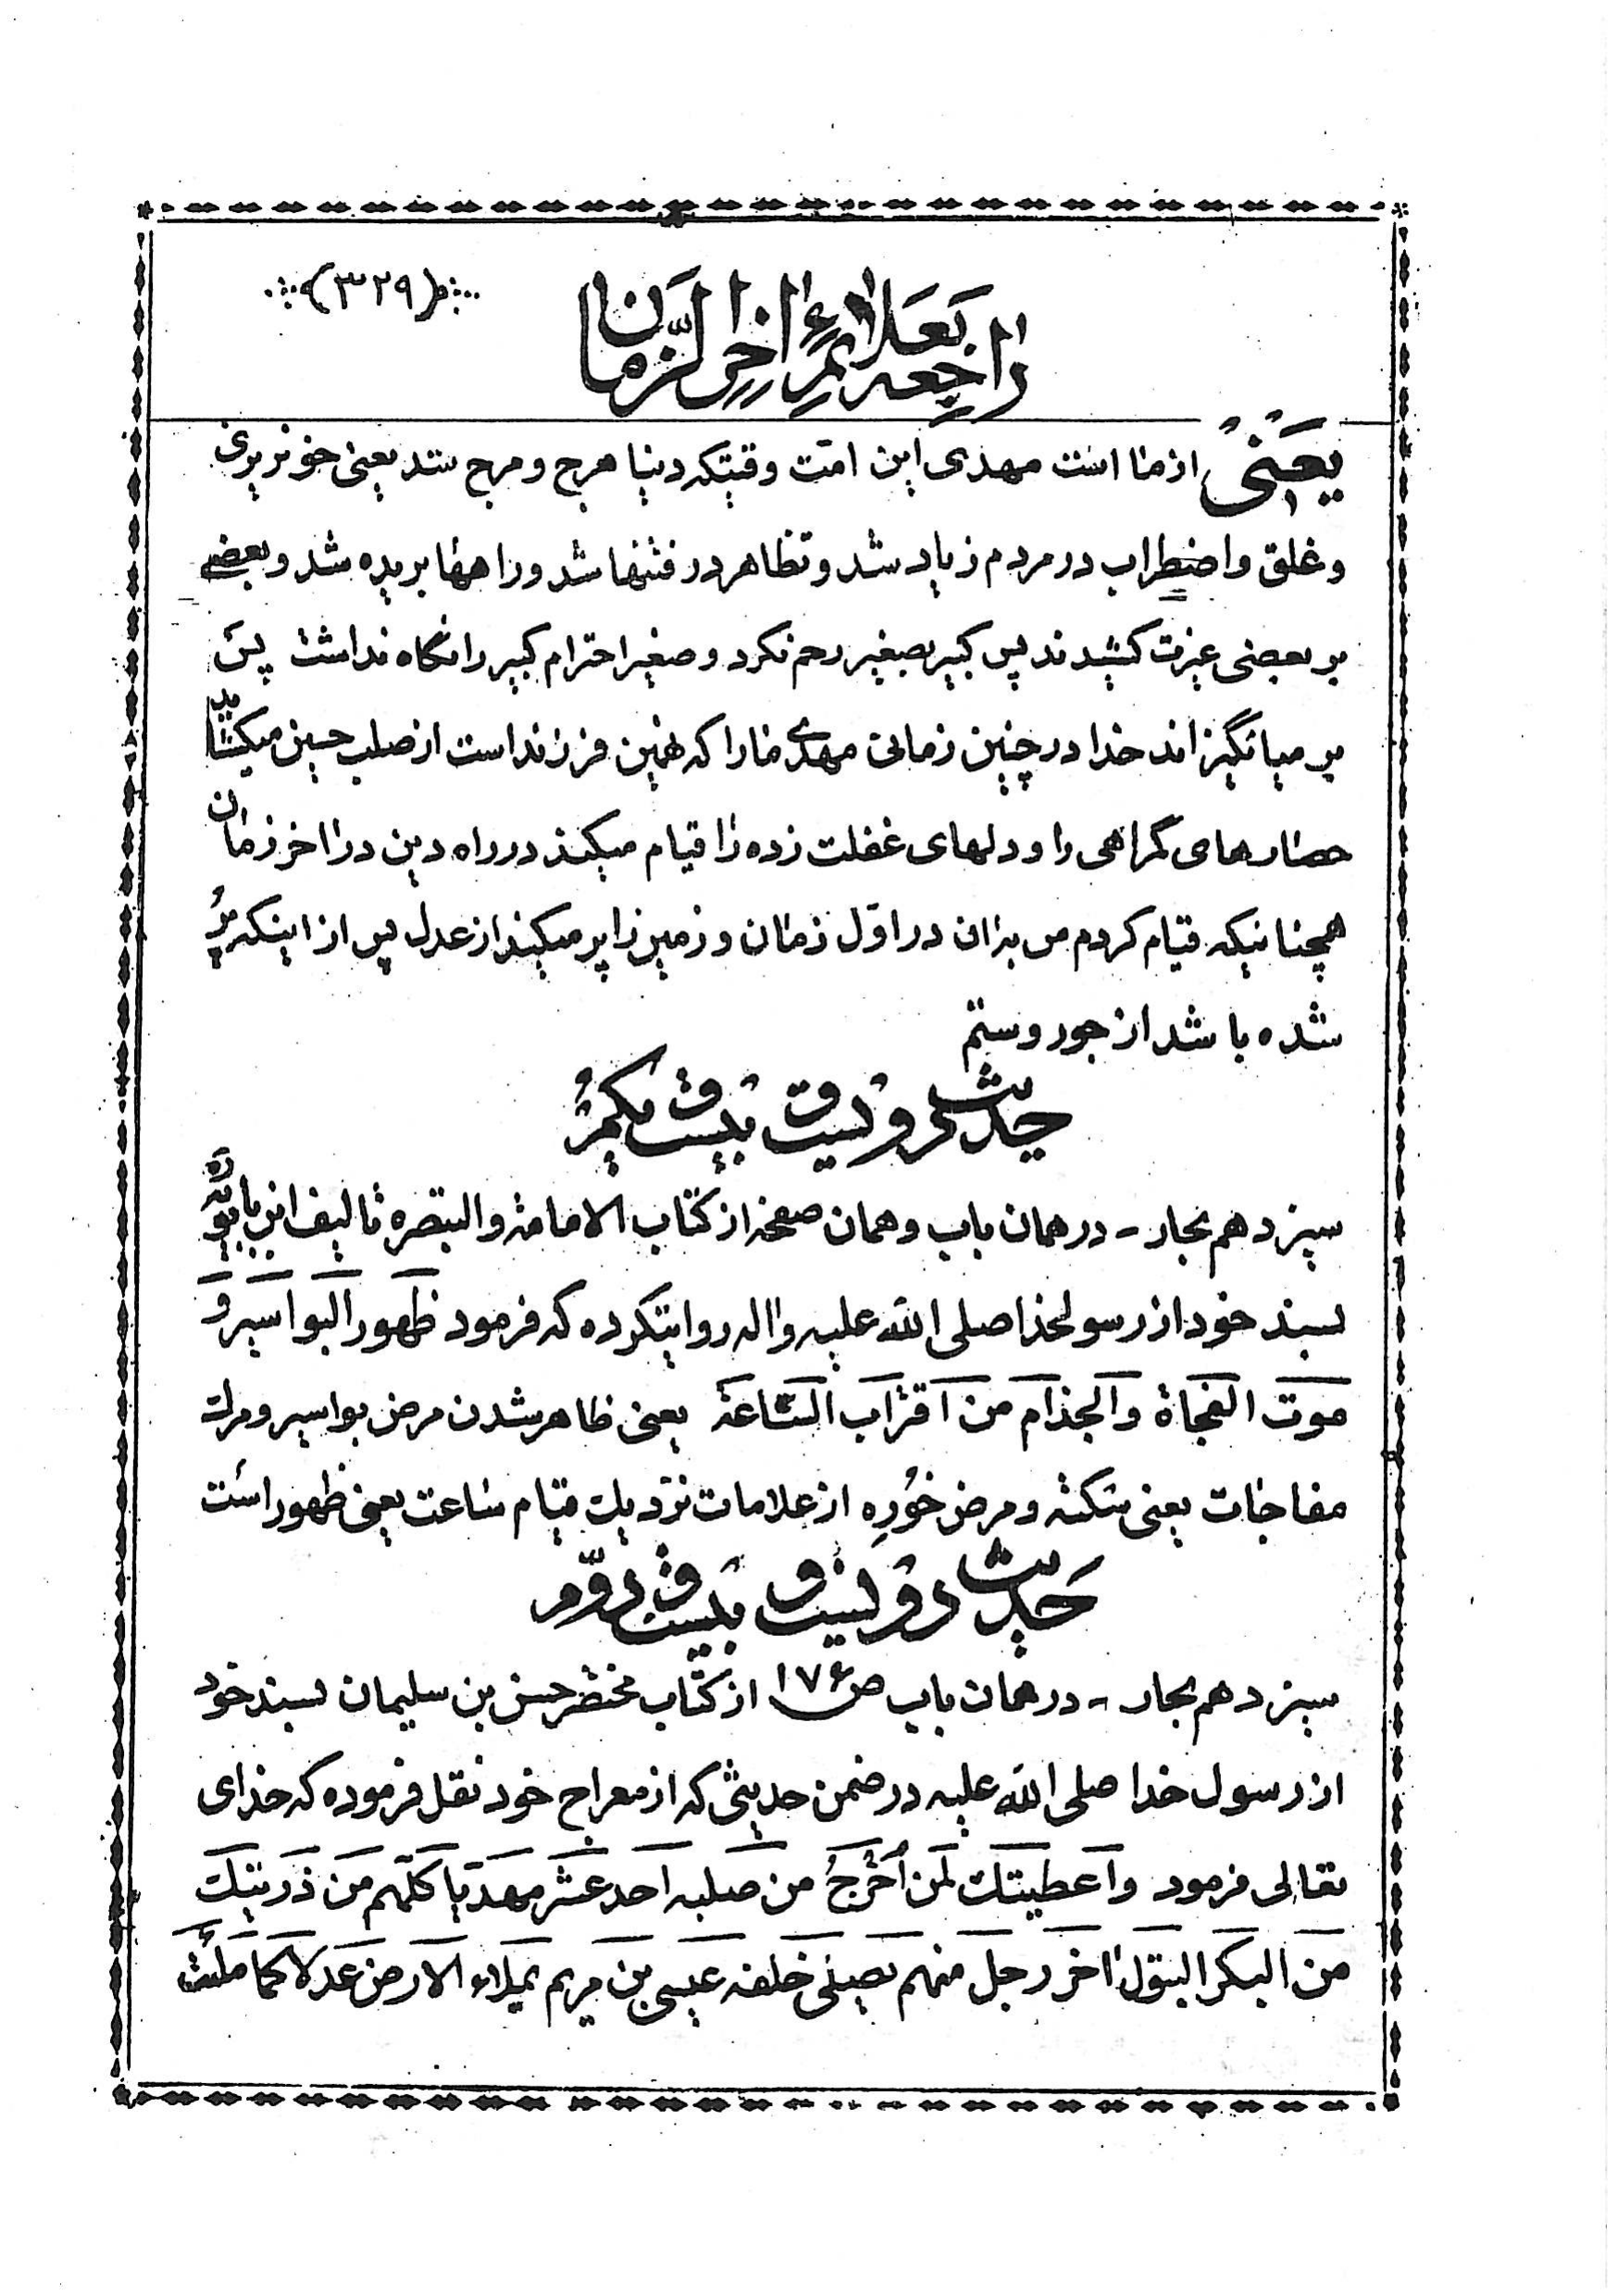 (۳۲۹)
راجعه بعلائم اخر الزمان
یعنی از ما است مهدی این امت وقتیکه دنیا هرج و مرج شد یعنی خونریزی
و غلق و اضطراب در مردم زیاد شد و تظاهر در فتنها شد و راهها بریده شد و بعضی
بر بعضی غیرت کشیدند پس کبیر بصغیر رحم نکرد و صغیر احترام کبیر را نگاه نداشت پس
بر میانگیزاند خدا در چنین زمانی مهدی ما را که نهمین فرزند است از صلب حسین میگشاید
حصارهای گمراهی را و دلهای غفلت زده را قیام میکند در راه دین در اخر زمان
همچنانیکه قیام کردم من بدان در اول زمان و زمین را پر میکند از عدل پس از اینکه پر
شده باشد از جور و ستم
حدیث دویست و بیست و یکم
سیزدهم بحار - در همان باب و همان صفحه از کتاب الامامة والتبصره تالیف ابن بابویه ره
بسند خود از رسولخدا صلی الله علیه واله روایتکرده که فرمود ظهور البواسیر و
موت الفجاة والجذام من اقتراب الساعة یعنی ظاهر شدن مرض بواسیر و مرگ
مفاجات یعنی سکته و مرض خوره از علامات نزدیک قیام ساعت یعنی ظهور است
حدیث دویست و بیست و دوم
سیزدهم بحار - در همان باب ص ۱۷۶ از کتاب مختصر حسن بن سلیمان بسند خود
از رسول خدا صلی الله علیه در ضمن حدیثی که از معراج خود نقل فرموده که خدای
تعالی فرمود واعطیتک لمن اُخرجُ من صلبه احد عشر مهدیا کلهم من ذریتک
من البکر البتول اخر رجل منهم یصلی خلفه عیسی بن مریم یملاء الارض عدلا کما ملئت